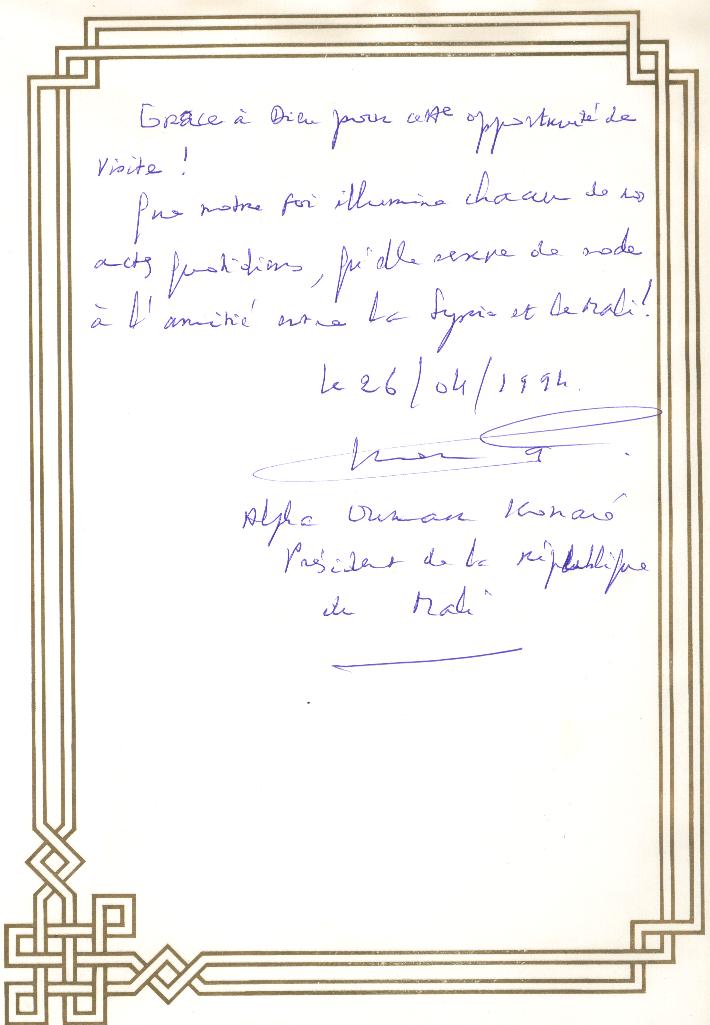 Grâce à Dieu pour cette opportunité de
visite !
Que notre foi illumine chacun de nos
actes quotidiens, qu'elle serve de
à l'amitié entre la Syrie et le Mali !
le 26/04/1994.
Alpha Oumar Konaré
Président de la République
du Mali